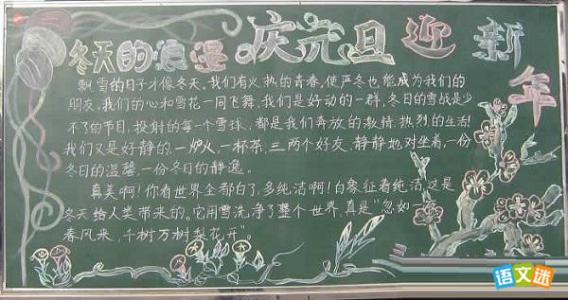 冬天的浪漫 庆元旦 迎新年
飘雪的日子才像冬天。我们有火热的青春,使严冬也能成为我们的
朋友,我们的心和雪花一同飞舞。我们是好动的一群,冬日的雪战是少
不了的节目,投射的每一个雪球,都是我们奔放的激情,热烈的生活!
我们又是好静的,一炉火,一杯茶,三两个好友,静静地对坐着,一份
冬日的温馨,一份冬日的静逸。
真美啊!你看世界全都白了,多纯洁啊!白象征着纯洁,这是
冬天给人类带来的。它用雪洗净了整个世界,真是“忽如一夜
春风来,千树万树梨花开”。
语文迷